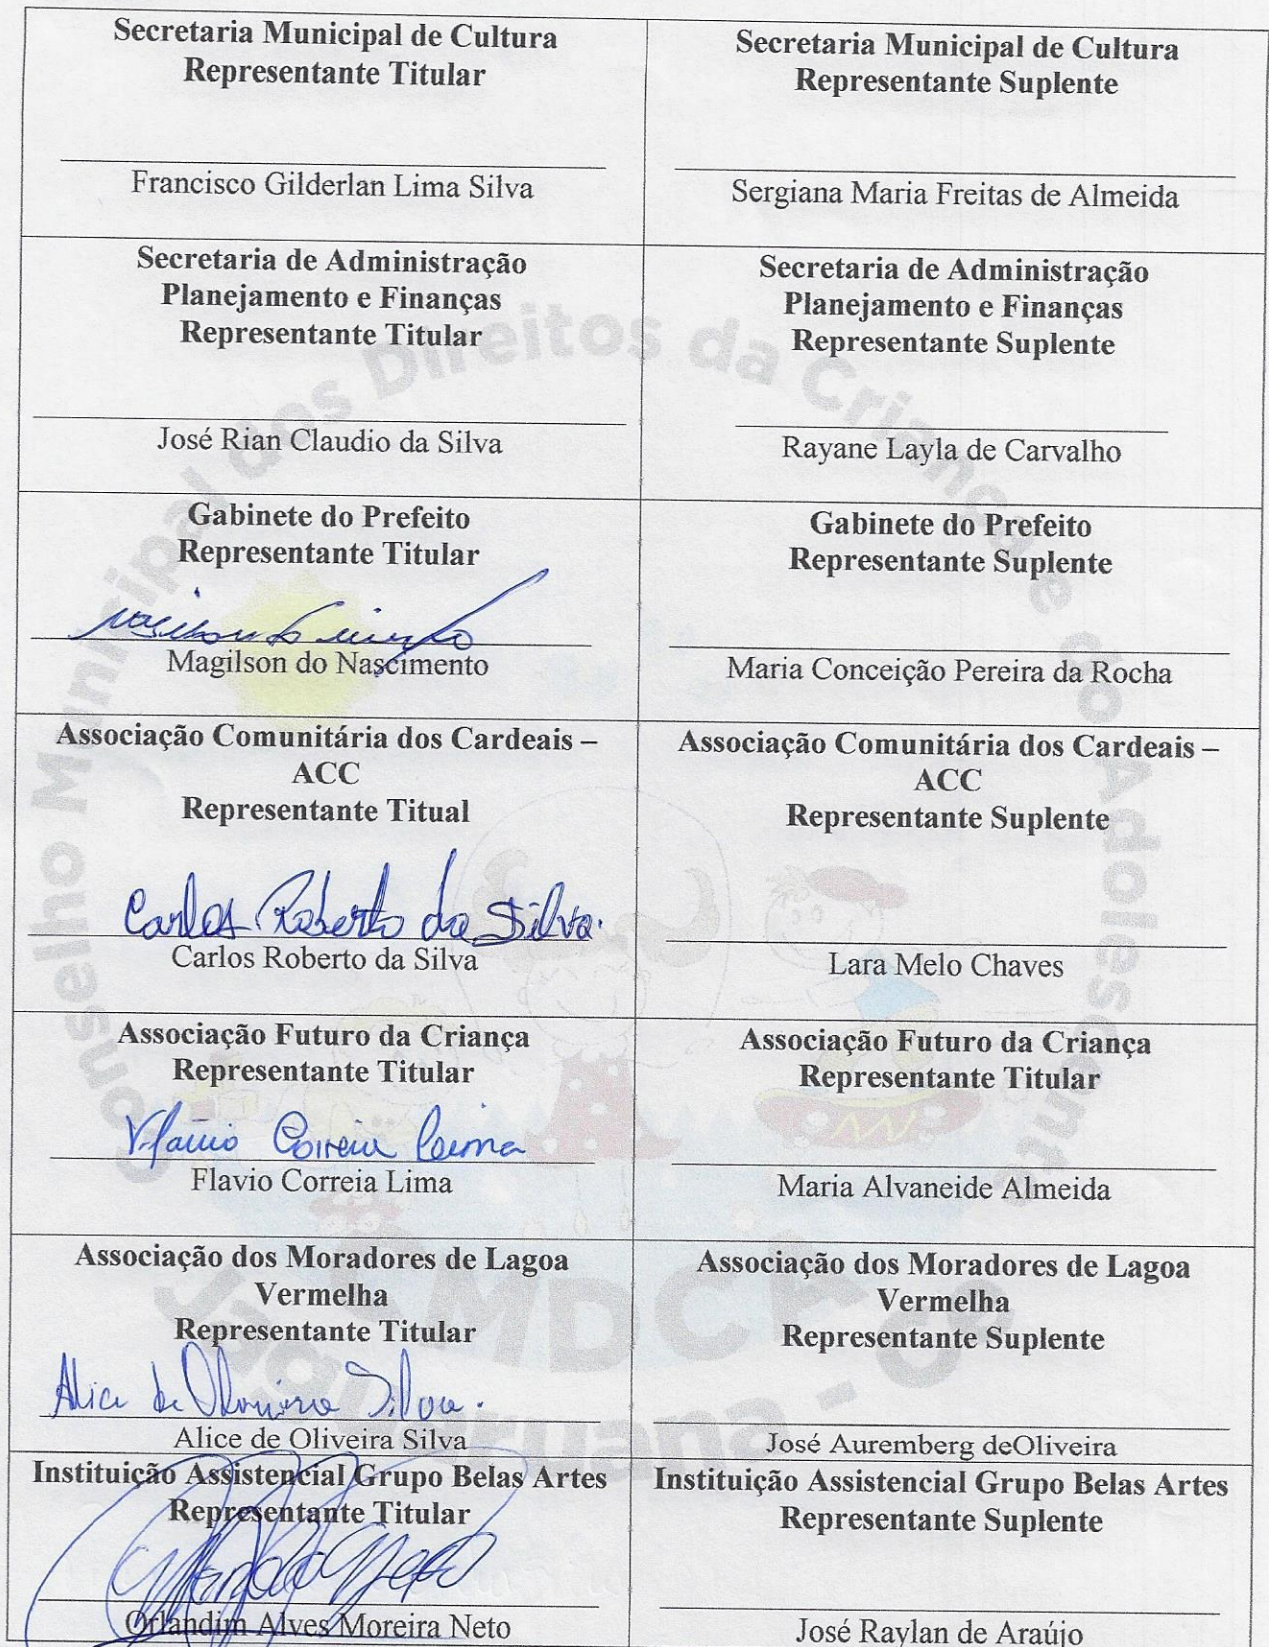 Secretaria Municipal de Cultura
Representante Titular
Francisco Gilderlan Lima Silva
Secretaria Municipal de Cultura
Representante Suplente
Sergiana Maria Freitas de Almeida
Secretaria de Administração
Planejamento e Finanças
Representante Titular
José Rian Claudio da Silva
Secretaria de Administração
Planejamento e Finanças
Representante Suplente
Rayane Layla de Carvalho
Gabinete do Prefeito
Representante Titular
Magilson do Nascimento
Gabinete do Prefeito
Representante Suplente
Maria Conceição Pereira da Rocha
Associação Comunitária dos Cardeais –
ACC
Representante Titual
Carlos Roberto da Silva.
Carlos Roberto da Silva
Associação Comunitária dos Cardeais –
ACC
Representante Suplente
Lara Melo Chaves
Associação Futuro da Criança
Representante Titular
Flavio Correia Lima
Flavio Correia Lima
Associação Futuro da Criança
Representante Titular
Maria Alvaneide Almeida
Associação dos Moradores de Lagoa
Vermelha
Representante Titular
Alice de Oliveira Silva.
Alice de Oliveira Silva
Associação dos Moradores de Lagoa
Vermelha
Representante Suplente
José Auremberg deOliveira
Instituição Assistencial Grupo Belas Artes
Representante Titular
Orlandim Alves Moreira Neto
Instituição Assistencial Grupo Belas Artes
Representante Suplente
José Raylan de Araújo
Conselho Municipal dos Direitos da Criança e do Adolescente
CMDCA
Jaguaruana - CE